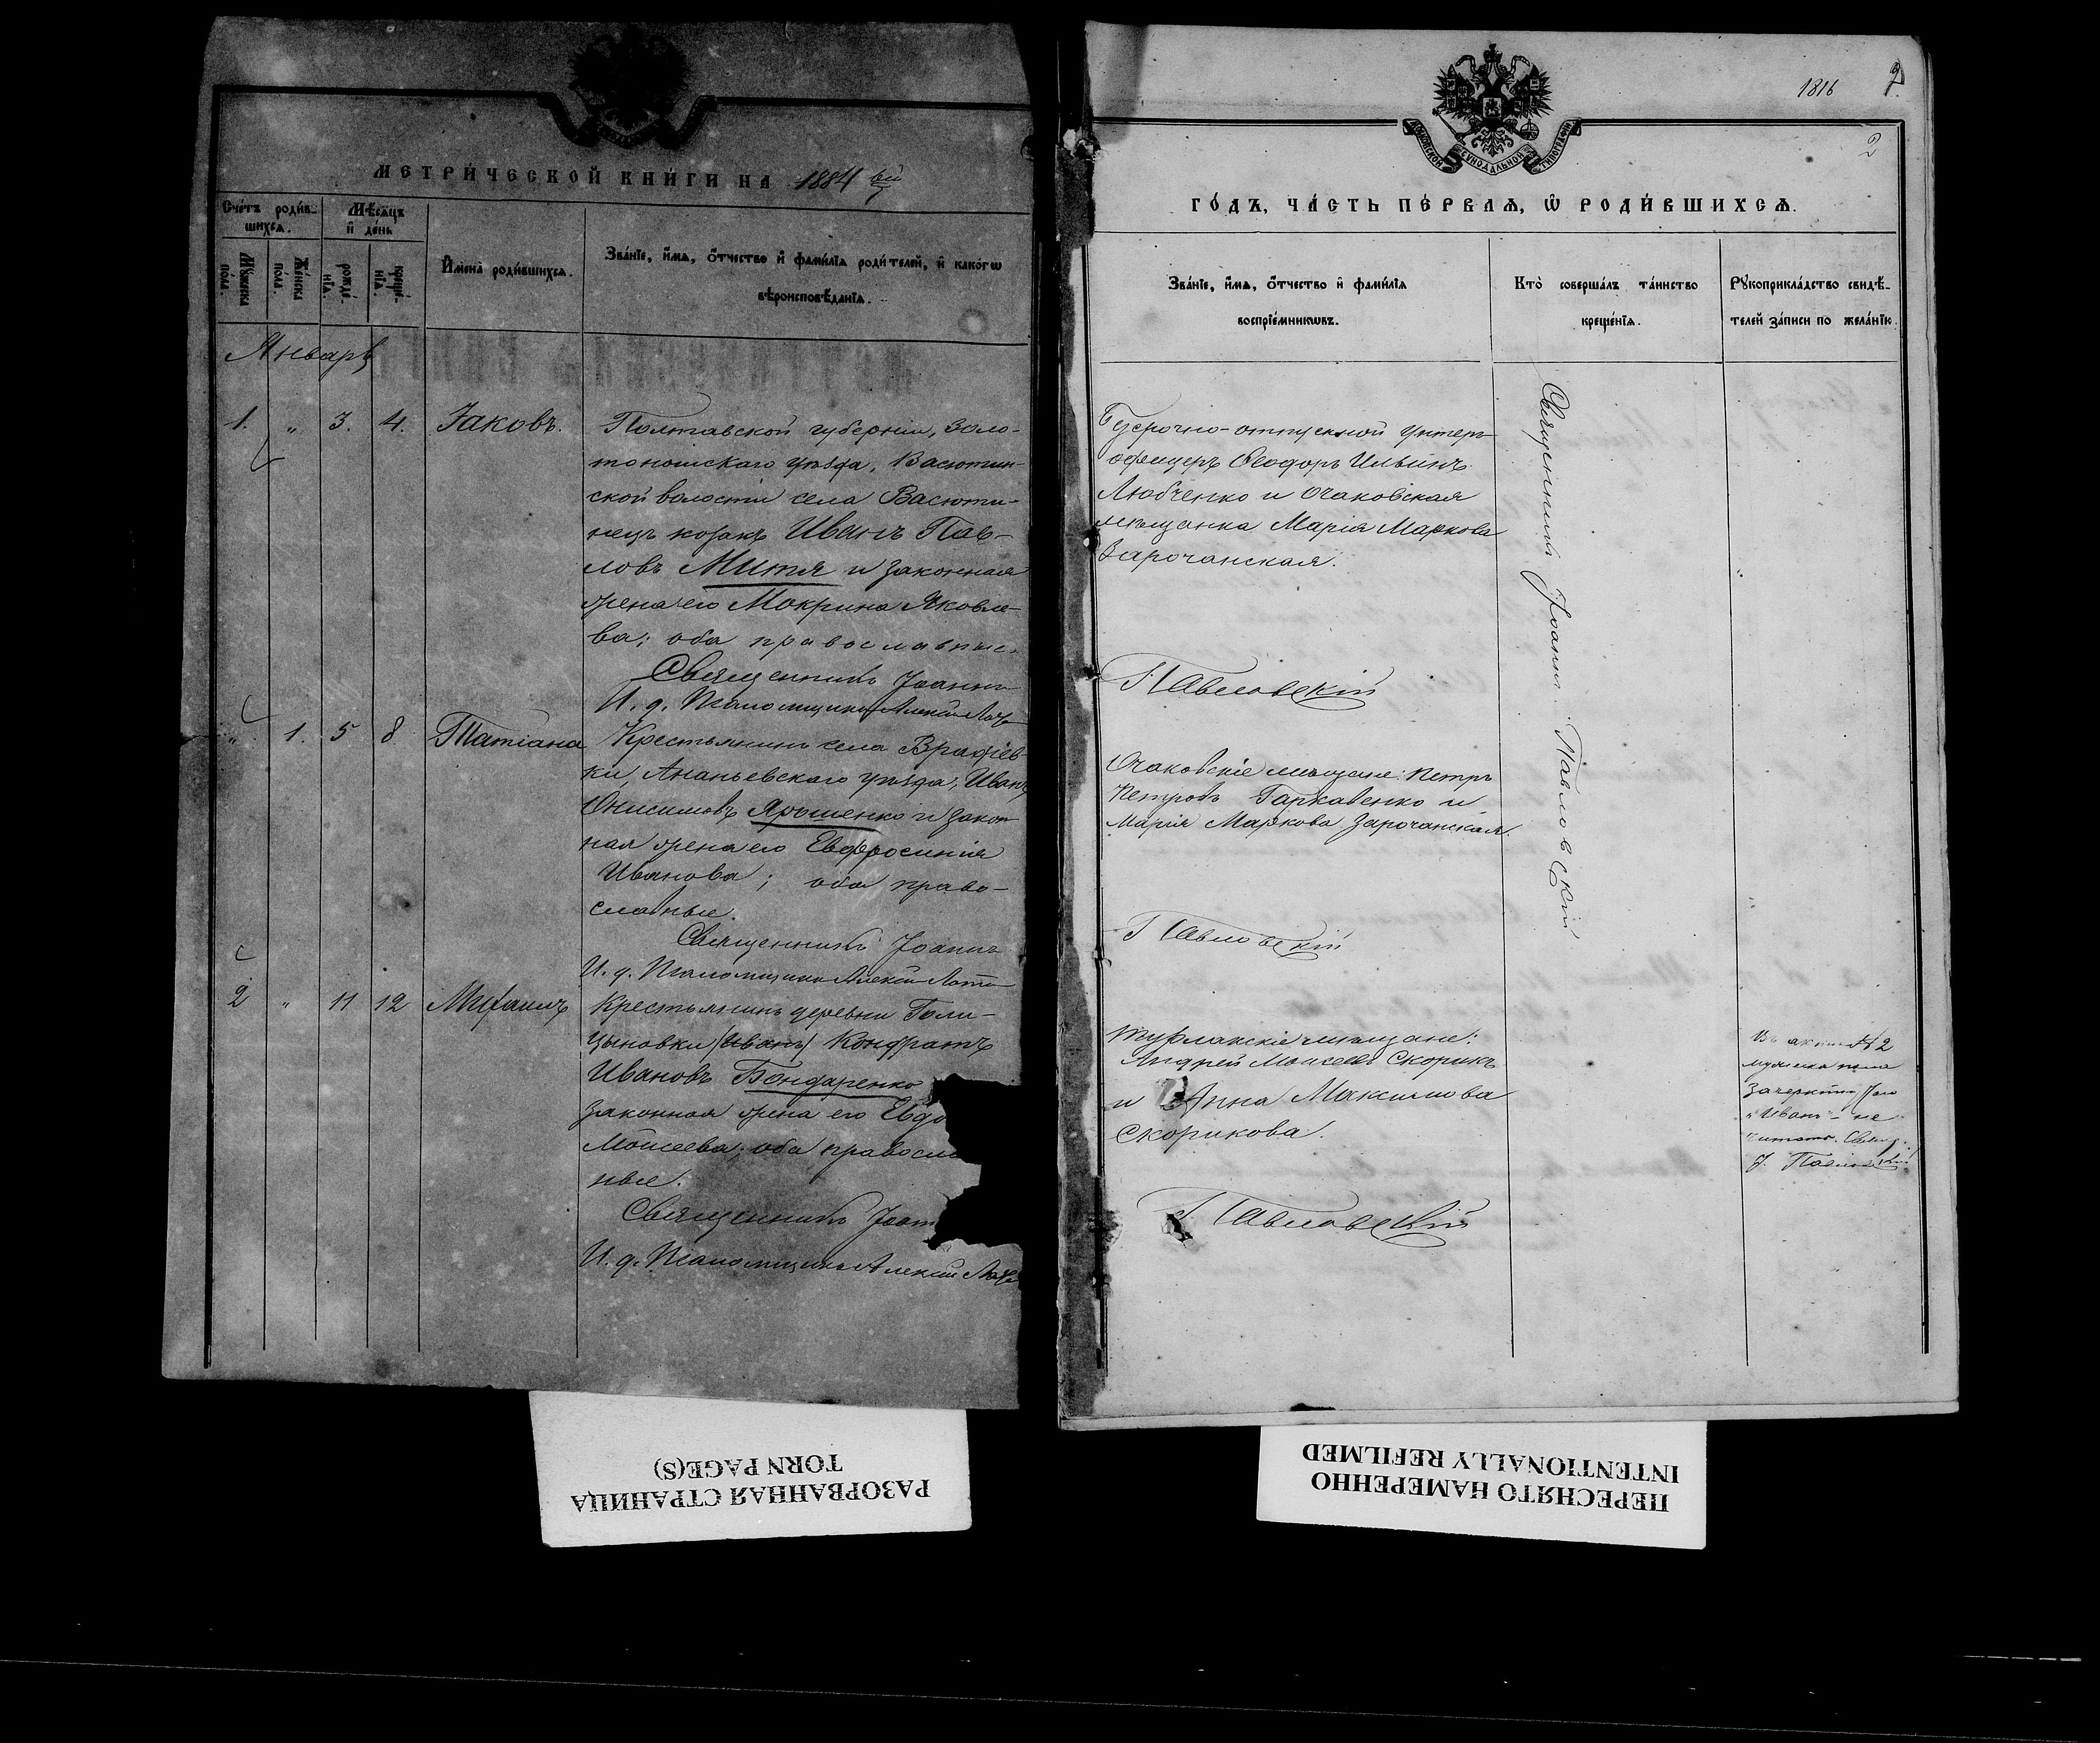 МЕТРИ́ЧЕСКОЙ КНИ́ГИ НА 1884 ый
Сче́тъ роди́в-
шихсѧ.
Мѣ́сѧцъ
и҆ де́нь
Мꙋ́жеска
по́ла.
Же́нска
по́ла.
рожде́-
нїѧ.
креще́-
нїѧ.
И҆мена̀ роди́вшихсѧ.
Зва́нїе, и҆́мѧ, ѻ҆́тчество и҆ фами́лїѧ роди́телей, и҆ како́гѡ
вѣроисповѣ́данїѧ.
Январь
1. „ 3. 4. Іаковъ.
Полтавской губерніи, Золо-
тоношскаго уѣзда, Васютин-
ской волости села Васюти-
нецъ козакъ Иванъ Пав-
ловъ Митя и законная
жена его Мокрина Яковле-
ва; оба православные.
Священникъ Іоаннъ
И. д. Псаломщика Алексѣй
„ 1. 5 8. Татіана
Крестьянинъ села Врадіев-
ки, Ананьевскаго уѣзда, Иванъ
Онисимовъ Ярошенко и закон
ная жена его Евфросинія
Иванова; оба право-
славные.
Священникъ Іоаннъ
И. д. Псаломщика Алексѣй
2 „ 11 12 Михаилъ
Крестьянинъ деревни Голи-
цыновки (Иванъ) Кондратъ
Ивановъ Бондаренко
законная жена его Евдо
Моисеева; оба правосла
ные.
Священникъ Іоан
И. д. Псаломщика Алексѣй
1816
2
МОСКОВСКОЙ СѴНОДАЛЬНОЙ ТИПОГРАФІИ
ГО́ДЪ, ЧА́СТЬ ПЕ́РВАѦ, Ѡ҆ РОДИ́ВШИХСѦ.
Зва́нїе, и҆́мѧ, ѻ҆́тчество и҆ фами́лїѧ
воспрїе́мникѡвъ.
Кто̀ соверша́лъ та́инство
креще́нїѧ.
Рꙋкоприкла́дство свидѣ́-
телей за́писи по жела́нїю.
Безсрочно-отпускной унтеръ
офицеръ Ѳеодоръ Ильинъ
Любченко и Очаковская
мѣщанка Марія Маркова
Зарочанская.
Павловскій
Очаковскіе мѣщане: Петръ
Петровъ Гаркавенко и
Марія Маркова Зарочанская.
Павловскій
мѣщане:
Андрей Моисеевъ Скорикъ
и Анна Максимова
Скорикова.
Павловскій
Священникъ Іоаннъ Павловскій
Въ актѣ № 2
мужеска пола
„Иванъ" – не
читать. Священ.
І. Павловскій
РАЗОРВАННАЯ СТРАНИЦА
TORN PAGE(S)
ПЕРЕСНЯТО НАМЕРЕННО
INTENTIONALLY REFILMED